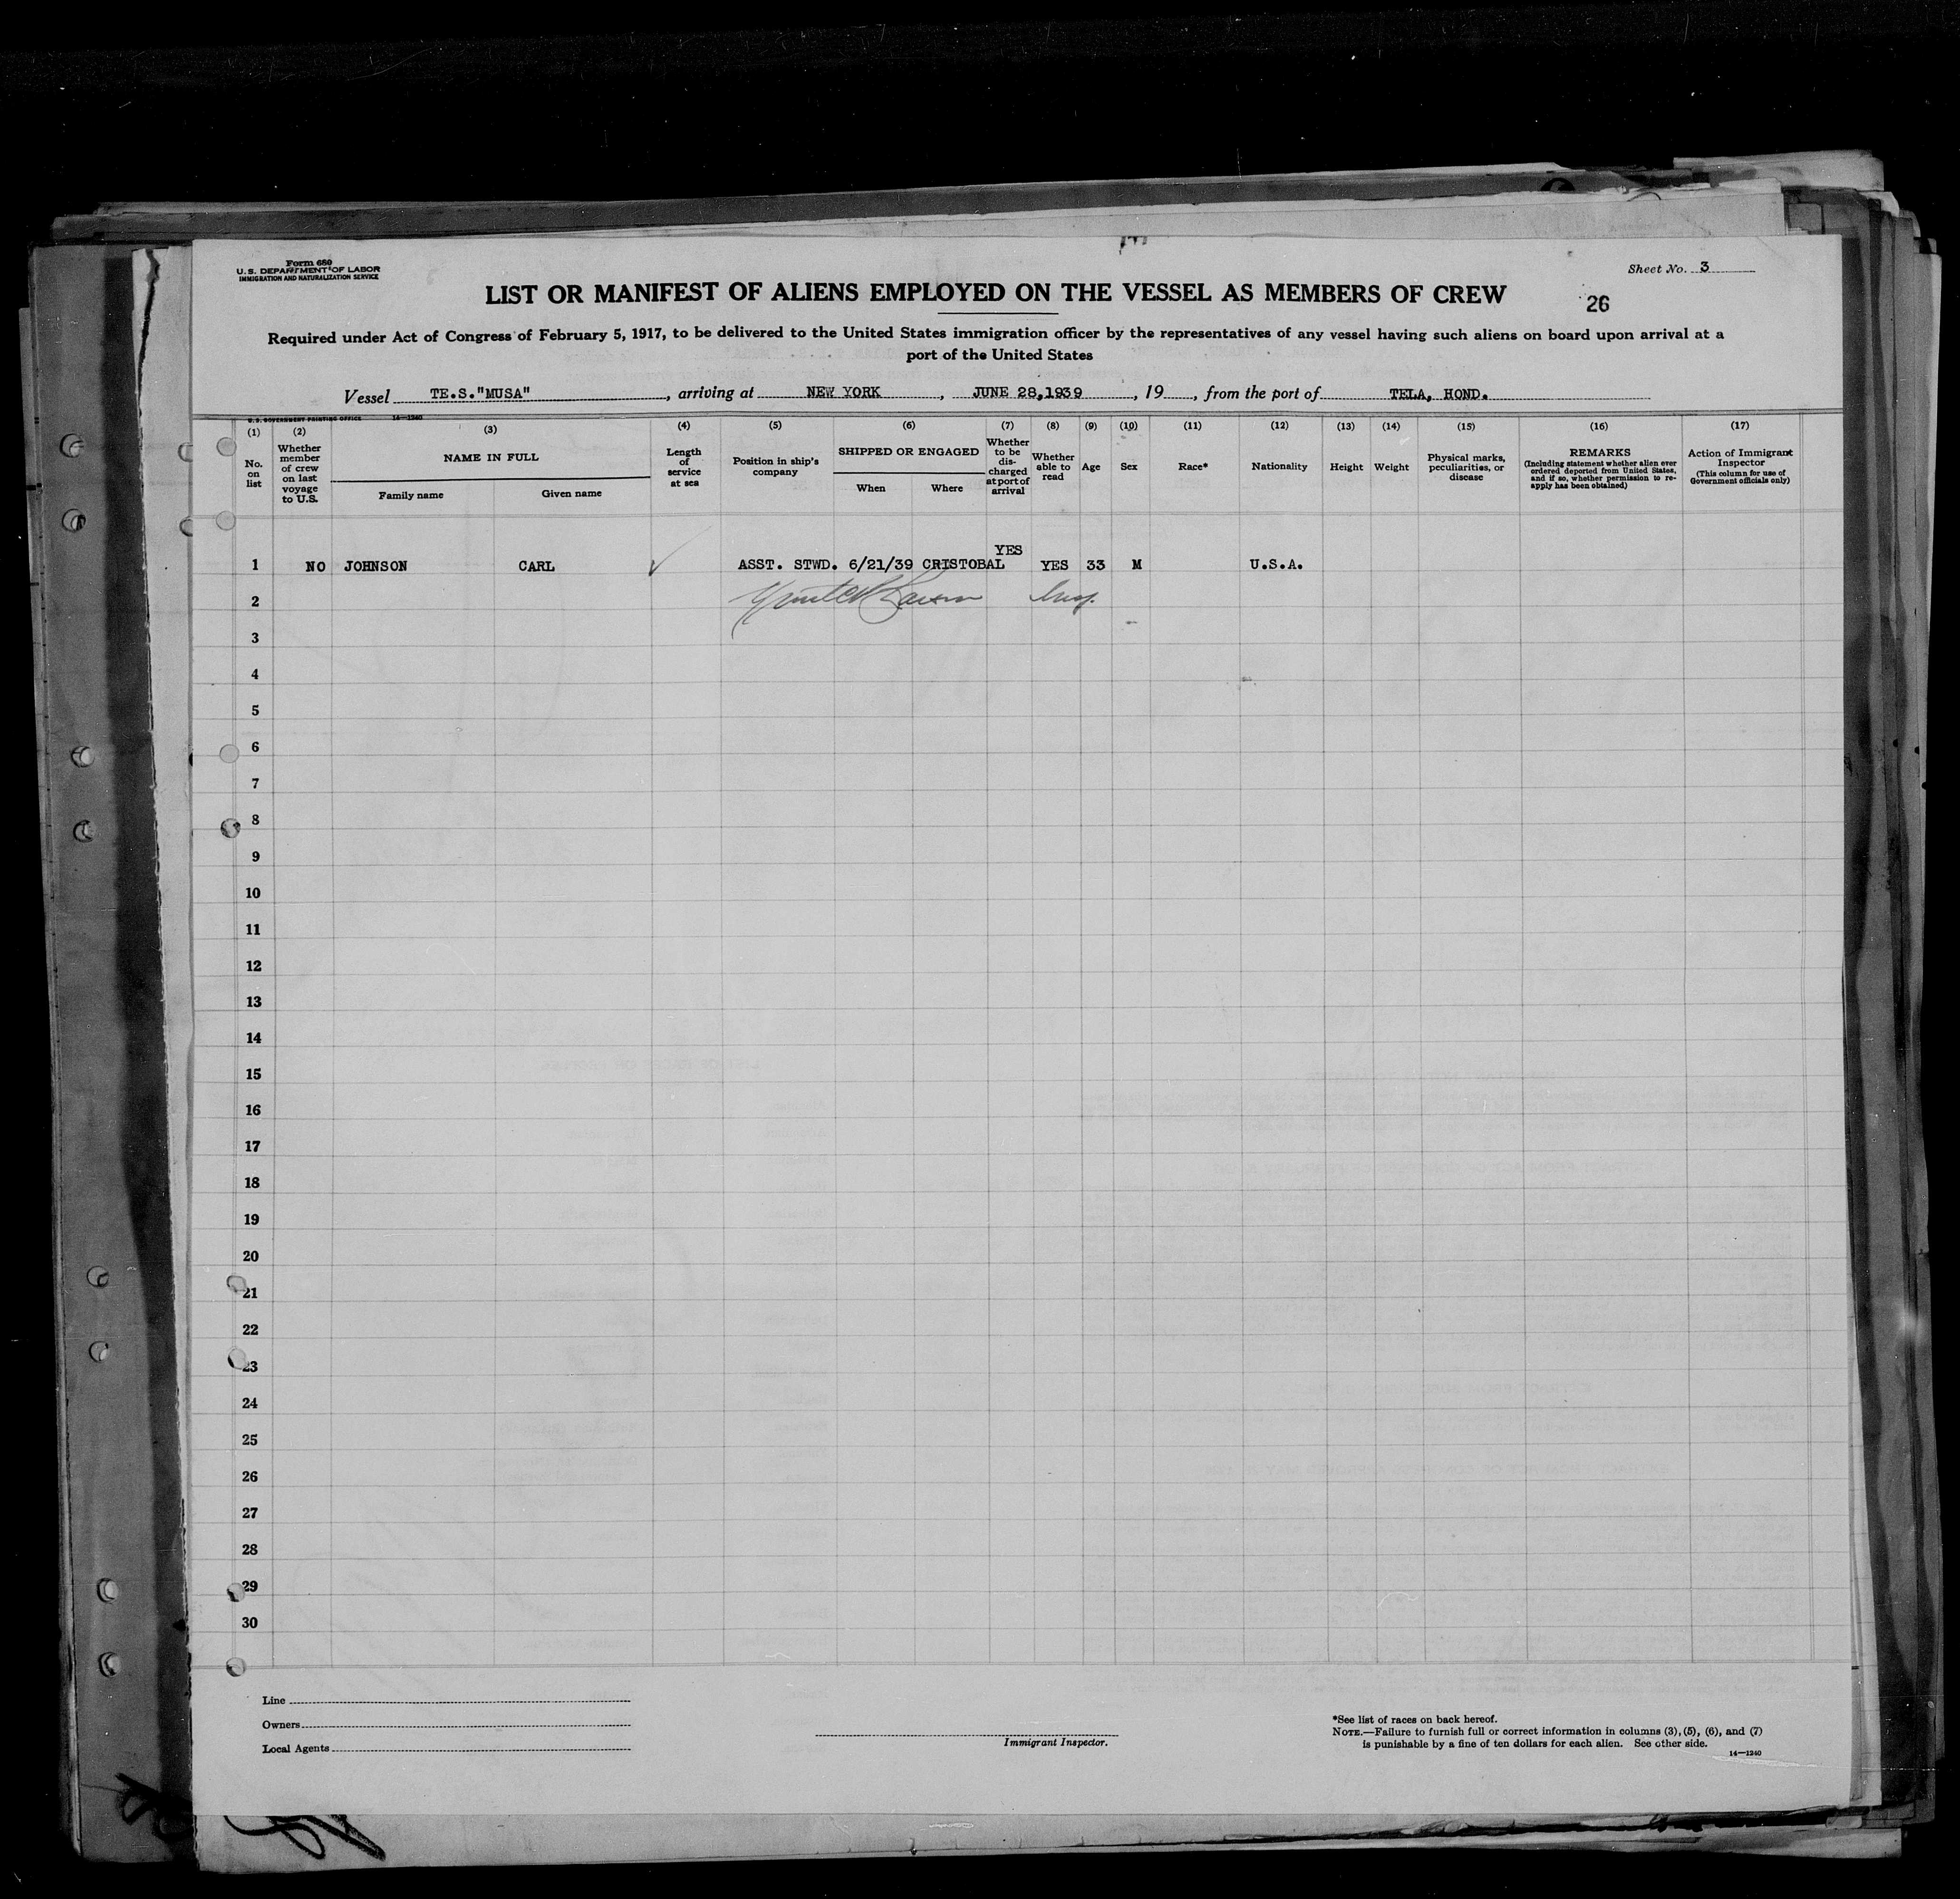 Form 680
U. S. DEPARTMENT OF LABOR
IMMIGRATION AND NATURALIZATION SERVICE
Sheet No. 3
LIST OR MANIFEST OF ALIENS EMPLOYED ON THE VESSEL AS MEMBERS OF CREW
26
Required under Act of Congress of February 5, 1917, to be delivered to the United States immigration officer by the representatives of any vessel having such aliens on board upon arrival at a
port of the United States
Vessel TE.S."MUSA", arriving at NEW YORK, JUNE 28,1939, 19, from the port of TELA, HOND.
U.S. GOVERNMENT PRINTING OFFICE 14—1240
(1) (2) (3) (4) (5) (6) (7) (8) (9) (10) (11) (12) (13) (14) (15) (16) (17)
No. on list
Whether member of crew on last voyage to U.S.
NAME IN FULL
Family name
Given name
Length of service at sea
Position in ship's company
SHIPPED OR ENGAGED
When
Where
Whether to be discharged at port of arrival
Whether able to read
Age
Sex
Race*
Nationality
Height
Weight
Physical marks, peculiarities, or disease
REMARKS
(Including statement whether alien ever ordered deported from United States, and if so, whether permission to re-apply has been obtained)
Action of Immigrant Inspector
(This column for use of Government officials only)
YES
1 NO JOHNSON CARL ✓ ASST. STWD. 6/21/39 CRISTOBAL YES 33 M U.S.A.
2
3
4
5
6
7
8
9
10
11
12
13
14
15
16
17
18
19
20
21
22
23
24
25
26
27
28
29
30
Line
Owners
Local Agents
Immigrant Inspector.
*See list of races on back hereof.
NOTE.—Failure to furnish full or correct information in columns (3), (5), (6), and (7)
is punishable by a fine of ten dollars for each alien. See other side.
14—1240